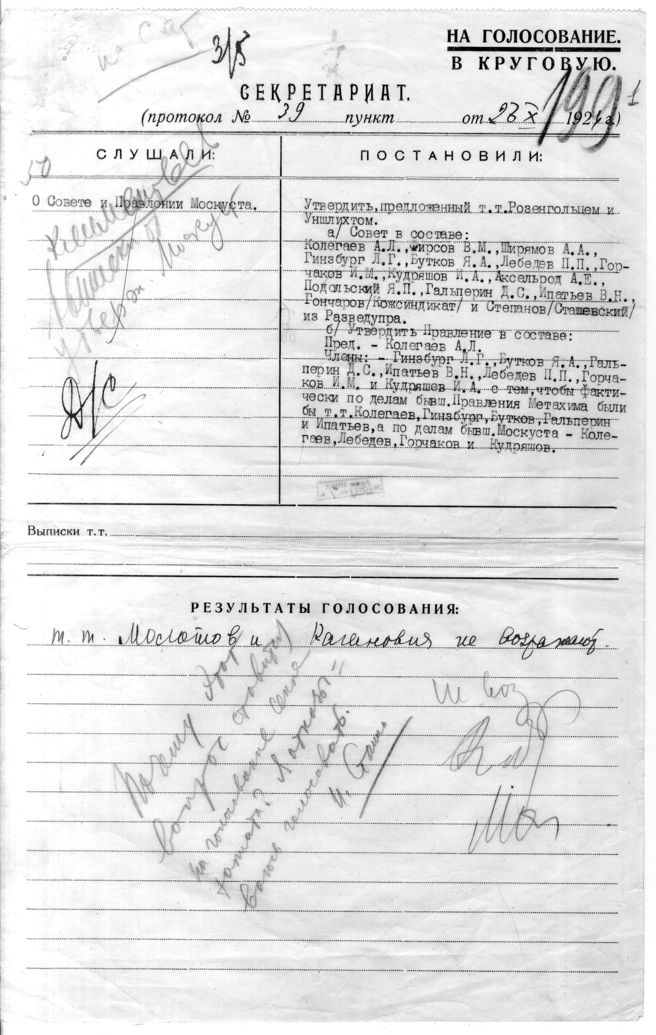 не саг
3/5
НА ГОЛОСОВАНИЕ.
В КРУГОВУЮ.
199¹
СЕКРЕТАРИАТ.
(протокол № 39 пункт от 23 X 1924 г.)
СЛУШАЛИ:
О Совете и Правлении Москуста.
ПОСТАНОВИЛИ:
Утвердить,предложенный т.т.Розенгольцем и
Уншлихтом.
а/ Совет в составе:
Колегаев А.Л.,Фирсов В.М.,Ширямов А.А.,
Гинзбург Л.Г.,Бутков Я.А.,Лебедев П.П.,Гор-
чаков И.М.,Кудряшов И.А.,Аксельрод А.Е.,
Подольский Я.П.,Гальперин Д.С.,Ипатьев В.Н.,
Гончаров/Кожсиндикат/ и Степанов/Сташевский/
из Разведупра.
б/ Утвердить Правление в составе:
Пред. - Колегаев А.Л.
Члены: - Гинзбург Л.Г.,Бутков Я.А.,Галь-
перин Д.С.,Ипатьев В.Н.,Лебедев П.П.,Горча-
ков И.М. и Кудряшев И.А. с тем,чтобы факти-
чески по делам бывш.Правления Метахима были
бы т.т.Колегаев,Гинзбург,Бутков,Гальперин
и Ипатьев,а по делам бывш.Москуста - Коле-
гаев,Лебедев,Горчаков и Кудряшов.
Выписки т.т.
РЕЗУЛЬТАТЫ ГОЛОСОВАНИЯ:
т.т. Молотов и Каганович не возражают.
Почему этот
вопрос ставится
на голосование Секре
тариата? Я отказы=
ваюсь голосовать.
И. Сталин
не воз
Мол